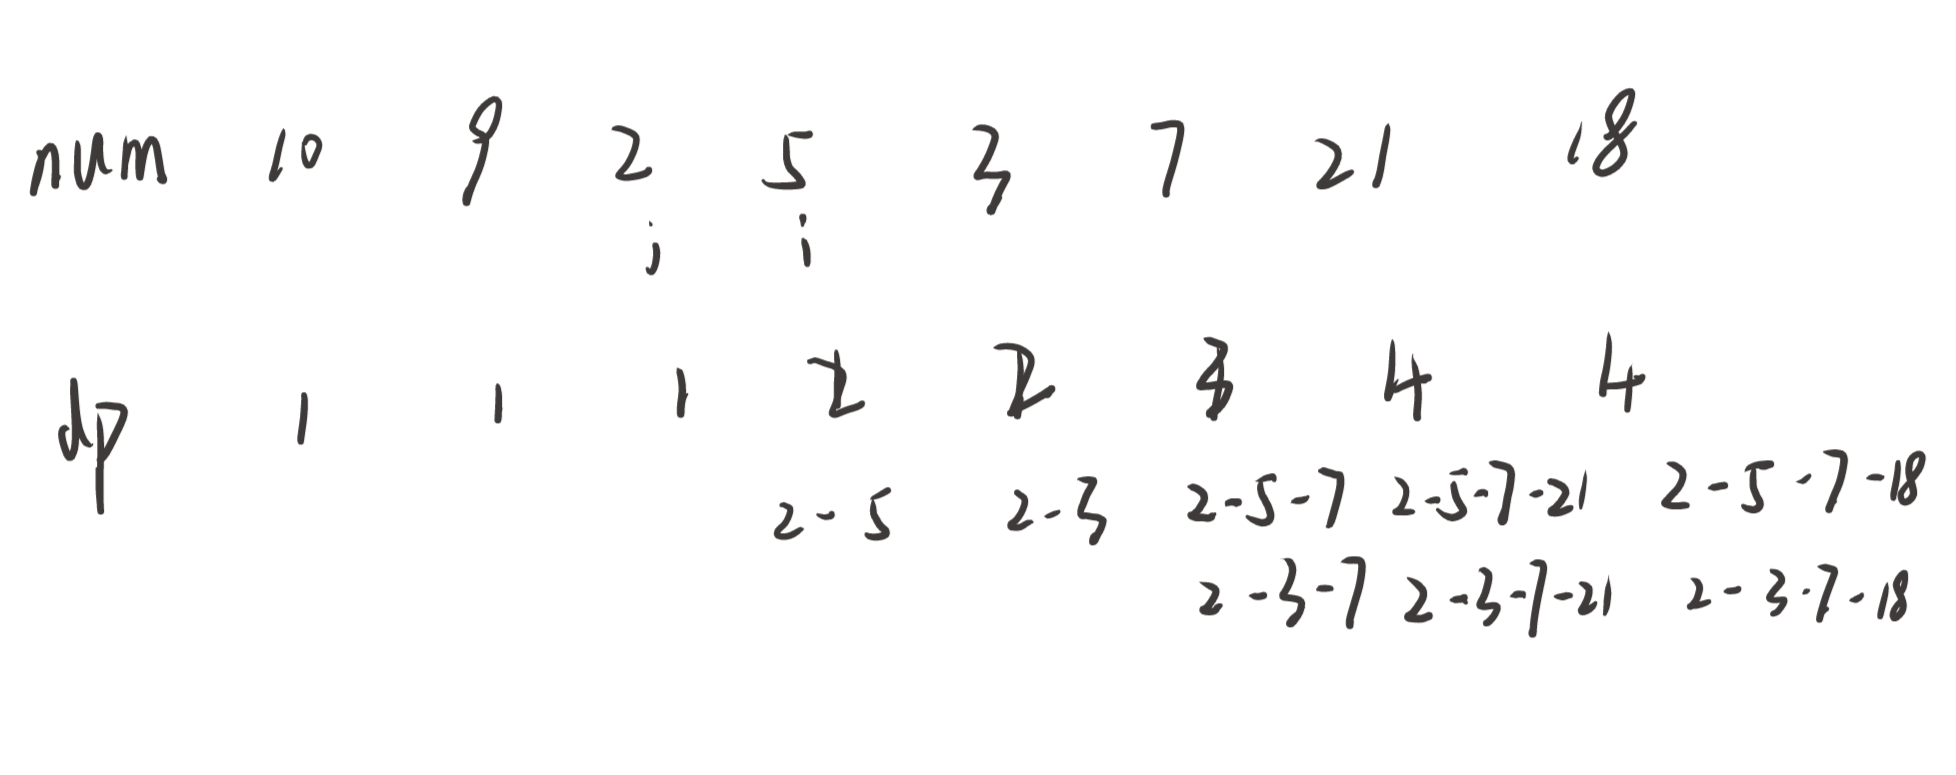 num 10 9 2 5 3 7 21 18
j i
dp 1 1 1 2 2 3 4 4
2-5 2-3 2-5-7 2-5-7-21 2-5-7-18
2-3-7 2-3-7-21 2-3-7-18